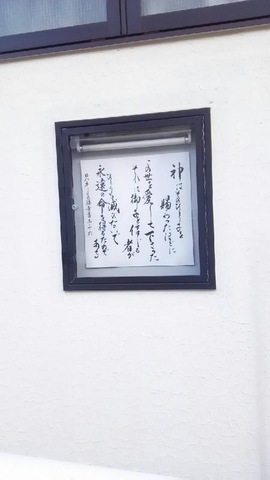 神はそのひとり子を
賜わったほどに
この世を愛して下さった
それは御子を信じる者が
ひとりも滅びないで
永遠の命を得るためである
福音書